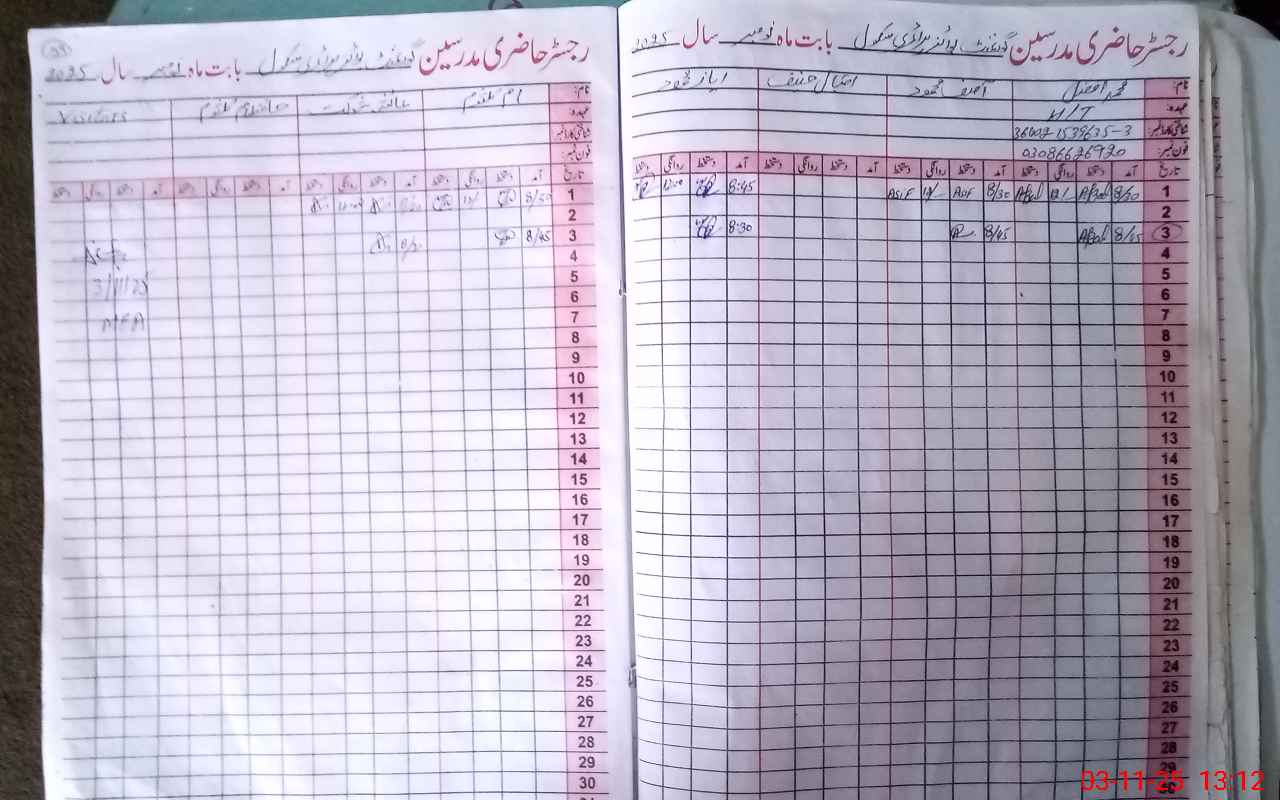 رجسٹر حاضری مدرسین گورنمنٹ بوائز پرائمری سکول بابت ماہ نومبر سال 2025
نام: محمد افضل آصف محمود اجمال حنیف ایاز محمود
عہدہ: H/T
شناختی کارڈ نمبر: 36602-1539635-3
فون نمبر: 03086626920
تاریخ آمد دستخط روانگی دستخط آمد دستخط روانگی دستخط آمد دستخط روانگی دستخط آمد دستخط روانگی دستخط
1 8/30 Afzal 12/- Afzal 8/30 ASIF 12/- ASIF 8:45 12:00
2
3 8/45 Afzal 8/45 8:30
4
5
6
7
8
9
10
11
12
13
14
15
16
17
18
19
20
21
22
23
24
25
26
27
28
29
30
رجسٹر حاضری مدرسین گورنمنٹ بوائز پرائمری سکول بابت ماہ نومبر سال 2025
نام: ام کلثوم عائشہ شوکت Visitors
عہدہ:
شناختی کارڈ نمبر:
فون نمبر:
تاریخ آمد دستخط روانگی دستخط آمد دستخط روانگی دستخط آمد دستخط روانگی دستخط آمد دستخط روانگی دستخط
1 8/30 12/-
2
3 8/45
4
5 3/11/25
6
7 MEA
8
9
10
11
12
13
14
15
16
17
18
19
20
21
22
23
24
25
26
27
28
29
30
03-11-25 13:12